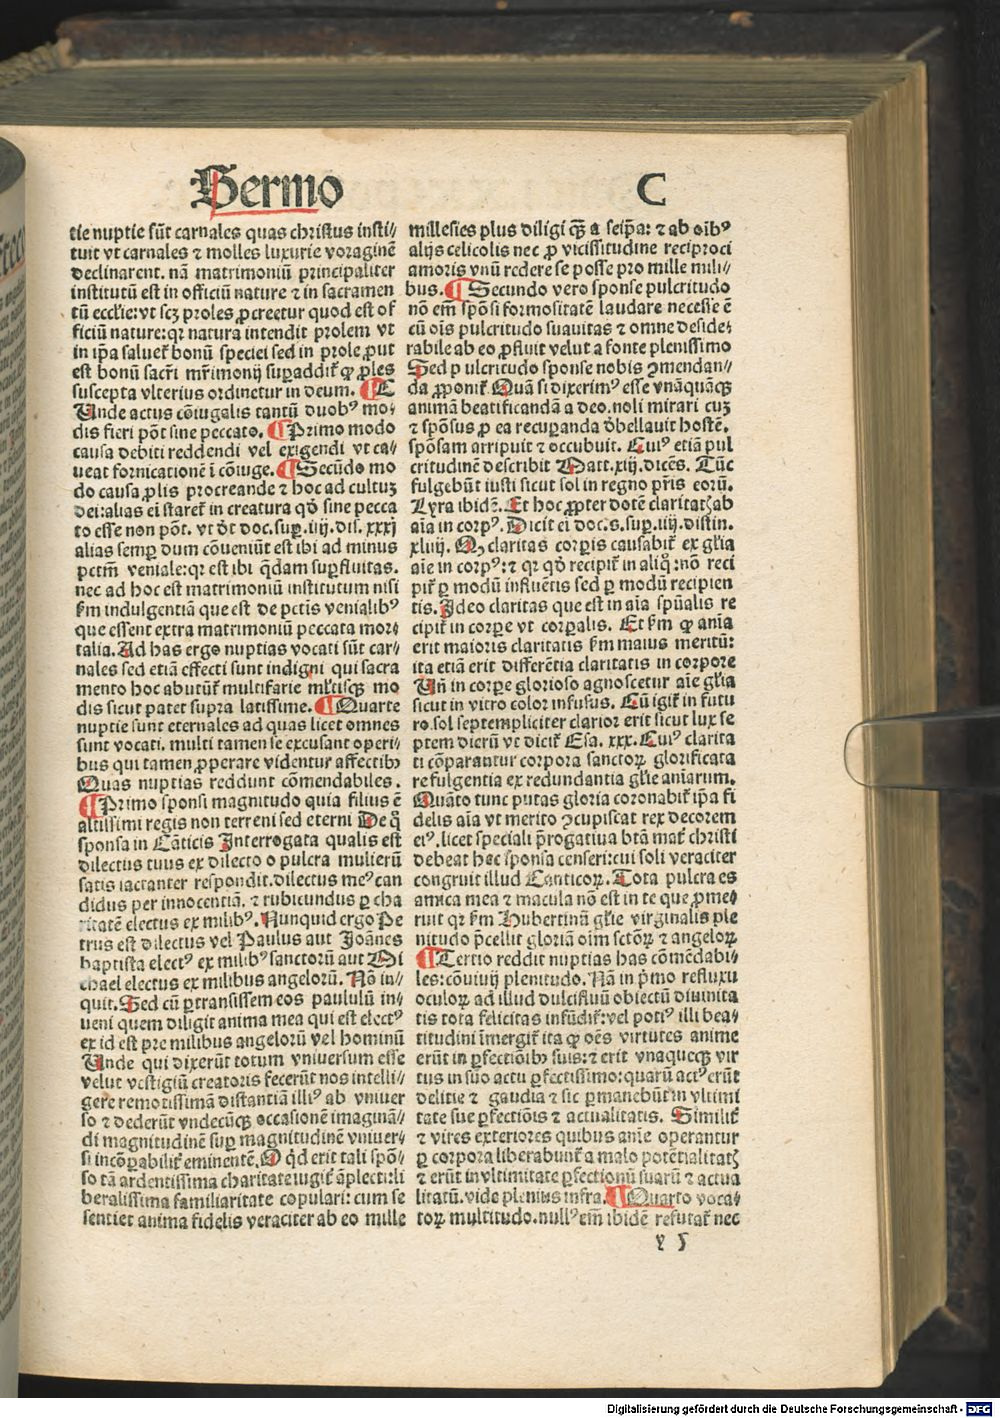 Sermo C
tie nuptie sūt carnales quas christus insti⸗
tuit vt carnales ⁊ molles luxurie voraginē
declinarent. nā matrimoniū principaliter
institutū est in officiū nature ⁊ in sacramen
tū ecclie: vt scꝫ proles ꝓcreetur quod est of
ficiū nature: qꝛ natura intendit prolem vt
in ip̄a saluet᷑ bonū speciei sed in prole ꝓut
est bonū sacr̄i mr̄imonij suꝑaddit᷑ ꝙ ꝓles
suscepta vlterius ordinetur in deum. ¶ C
Unde actus cōiugalis tantū duobꝰ mo⸗
dis fieri pōt sine peccato. ¶ Primo modo
causa debiti reddendi vel exigendi vt ca⸗
ueat fornicationē ī cōiuge. ¶ Secūdo mo
do causa ꝓlis procreande ⁊ hoc ad cultuꝫ
dei: alias ei staret᷑ in creatura qd̓ sine pecca
to esse non pōt. vt dt̓ doc. suꝑ. iiij. dis. xxxj
alias semꝑ dum cōueniūt est ibi ad minus
pctm̄ veniale: qꝛ est ibi q̄dam suꝑfluitas.
nec ad hoc est matrimoniū institutum nisi
ẜm indulgentiā que est de pctīs venialibꝰ
que essent extra matrimoniū peccata mor⸗
talia. Ad has ergo nuptias vocati sūt car⸗
nales sed etiā effecti sunt indigni qui sacra
mento hoc abutūt᷑ multifarie ml̓tisqꝫ mo
dis sicut patet supra latissime. ¶ Quarte
nuptie sunt eternales ad quas licet omnes
sunt vocati. multi tamen se excusant operi⸗
bus qui tamen ꝓperare videntur affectibꝫ
Quas nuptias reddunt cōmendabiles.
¶ Primo sponsi magnitudo quia filius ē
altissimi regis non terreni sed eterni De q̊
sponsa in Cāticis Interrogata qualis est
dilectus tuus ex dilecto o pulcra mulierū
satis iactanter respondit. dilectus meꝰ can
didus per innocentiā. ⁊ rubicundus ꝑ cha
ritatē electus ex milibꝰ. Nunquid ergo Pe
trus est dilectus vel Paulus aut Joānes
baptista electꝰ ex milibꝰ sanctorū aut Mi
chael electus ex milibus angelorū. Nō in⸗
quit. Sed cū ꝑtransissem eos paululū in⸗
ueni quem diligit anima mea qui est electꝰ
ex id est pre milibus angelorū vel hominū
Unde qui dixerūt totum vniuersum esse
velut vestigiū creatoris fecerūt nos intelli⸗
gere remotissimā distantiā illiꝰ ab vniuer
so ⁊ dederūt vndecūqꝫ occasionē imaginā⸗
di magnitudinē suꝑ magnitudinē vniuer⸗
si incōꝑabilit᷑ eminentē. O qd̓ erit tali spō⸗
so tā ardentissima charitate iugit᷑ āplecti: li
beralissima familiaritate copulari: cum se
sentiet anima fidelis veraciter ab eo mille
millesies plus diligi qꝫ̄ a seip̄a: ⁊ ab oībꝰ
alijs celicolis nec ꝓ vicissitudine reciproci
amoris vnū redere se posse pro mille mili⸗
bus. ¶ Secundo vero sponse pulcritudo
nō em̄ spōsi formositatē laudare necesse ē
cū oīs pulcritudo suauitas ⁊ omne deside⸗
rabile ab eo ꝓfluit velut a fonte plenissimo
Sed pulcritudo sponse nobis ꝯmendan⸗
da ꝓponit᷑. Quā si dixerimꝰ esse vnāquāqꝫ
animā beatificandā a deo. noli mirari cuꝫ
⁊ spōsus ꝓ ea recuꝑanda d̓bellauit hostē.
spōsam arripuit ⁊ occubuit. Cuiꝰ etiā pul
critudinē describit Matt. xiij. dicēs. Tūc
fulgebūt iusti sicut sol in regno pr̄is eorū.
Lyra ibidē. Et hoc ꝓpter dotē claritatꝭ ab
aīa in corpꝰ. Dicit ei doc. s. suꝑ. iiij. distin.
xliiij. Qꝫ claritas corꝑis causabit᷑ ex gl̓ia
aīe in corpꝰ: ⁊ qꝛ qd̓ recipit᷑ in aliq̊: nō reci
pit᷑ ꝑ modū influētis sed ꝑ modū recipien
tis. Ideo claritas que est in aīa spūalis re
cipit᷑ in corꝑe vt corꝑalis. Et ẜm ꝙ anīa
erit maioris claritatis ẜm maius meritū:
ita etiā erit differētia claritatis in corpore
Un̄ in corꝑe glorioso agnoscetur aīe gl̓ia
sicut in vitro color infusus. Cū igit᷑ in futu
ro. sol septempliciter clarior erit sicut lux se
ptem dierū vt dicit᷑ Esa. xxx. Cuiꝰ clarita
ti cōparantur corpora sanctoꝝ glorificata
refulgentia ex redundantia gl̓ie aniarum.
Quāto tunc putas gloria coronabit᷑ ip̄a fi
delis aīa vt merito ꝯcupiscat rex decorem
eiꝰ. licet speciali p̄rogatiua btā mat᷑ christi
debeat hec sponsa censeri: cui soli veraciter
congruit illud Canticoꝝ. Tota pulcra es
amica mea ⁊ macula nō est in te que ꝓme⸗
ruit qꝛ ẜm Hubertinū gl̓ie virginalis ple
nitudo p̄cellit gloriā oīm sctōꝝ ⁊ angeloꝝ
¶ Tertio reddit nuptias has cōmēdabi⸗
les: cōuiuij plenitudo. Nā in p̓mo refluxu
oculoꝝ ad illud dulcifluū obiectū diuinita
tis tota felicitas infūdit᷑: vel potiꝰ illi bea⸗
titudini īmergit᷑ ita ꝙ oēs virtutes anime
erūt in ꝑfectiōibꝫ suis: ⁊ erit vnaquecqꝫ vir
tus in suo actu ꝑfectissimo: quarū actꝰ erūt
delitie ⁊ gaudia ⁊ sic ꝑmanebūt in vltimi
tate sue ꝑfectiōis ⁊ actualitatis. Similit᷑
⁊ vires exteriores quibus anīe operantur
ꝑ corpora liberabunt᷑ a malo potētialitatꝭ
⁊ erūt in vltimitate ꝑfectionū suarū ⁊ actua
litatū. vide plenius infra. ¶ Quarto voca⸗
toꝝ multitudo. nullꝰ em̄ ibidē refutat᷑ nec
Digitalisierung gefördert durch die Deutsche Forschungsgemeinschaft - DFG